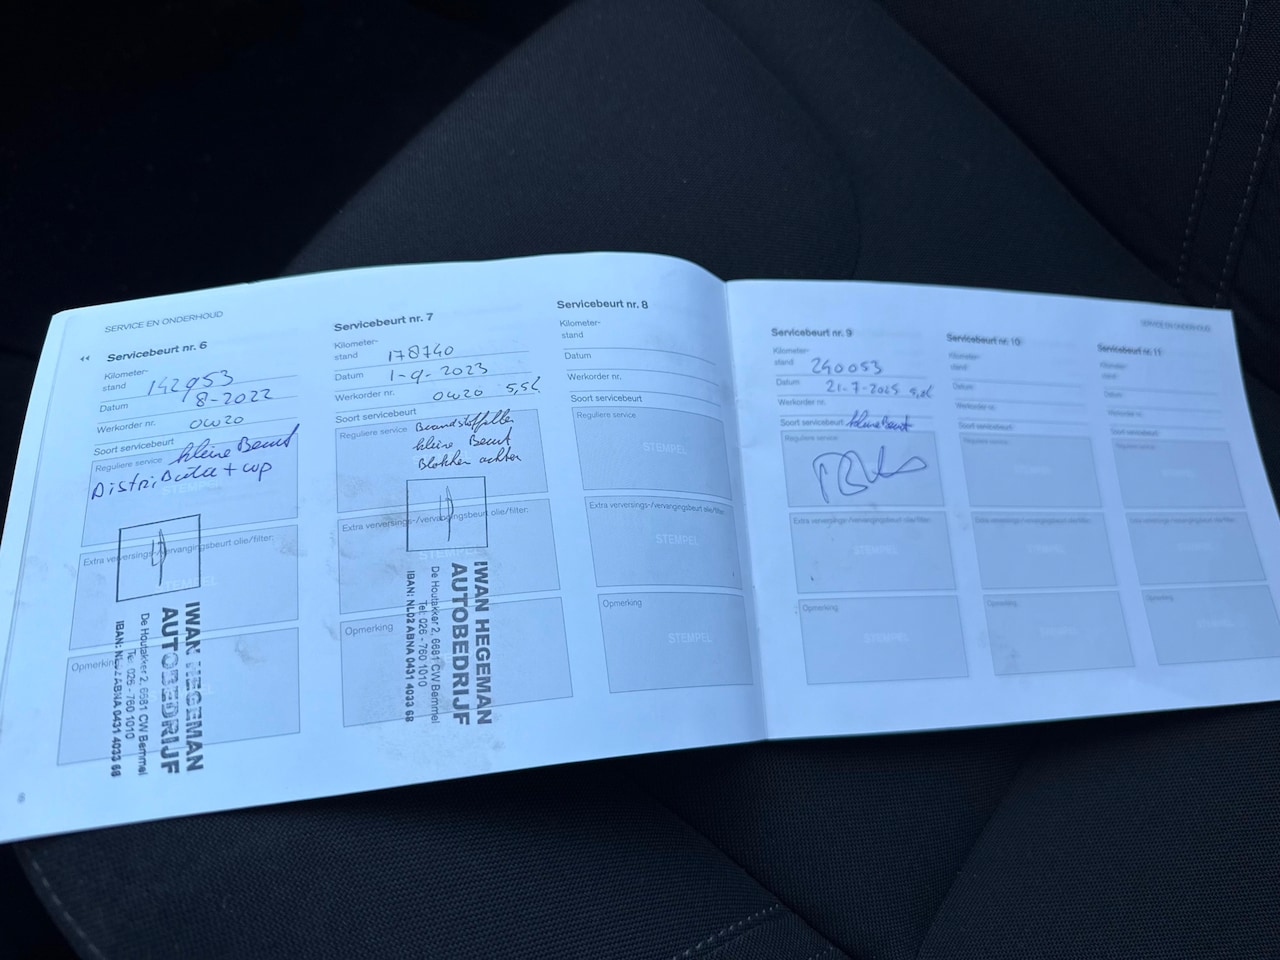 SERVICE EN ONDERHOUD
Servicebeurt nr. 6
Kilometer-
stand 142953
Datum 8-2022
Werkorder nr. 0W20
Soort servicebeurt
Reguliere service kleine Beurt
Distributie + wp
STEMPEL
Extra verversings-/vervangingsbeurt olie/filter:
STEMPEL
Opmerking
IWAN HEGEMAN
AUTOBEDRIJF
De Houtakker 2, 6681 CW Bemmel
Tel: 026 - 760 1010
IBAN: NL02 ABNA 0431 4033 68
8
Servicebeurt nr. 7
Kilometer-
stand 178740
Datum 1-9-2023
Werkorder nr. 0W20 5,5L
Soort servicebeurt
Reguliere service Brandstoffilter
kleine Beurt
Blokken achter
Extra verversings-/vervangingsbeurt olie/filter:
STEMPEL
Opmerking
IWAN HEGEMAN
AUTOBEDRIJF
De Houtakker 2, 6681 CW Bemmel
Tel: 026 - 760 1010
IBAN: NL02 ABNA 0431 4033 68
Servicebeurt nr. 8
Kilometer-
stand
Datum
Werkorder nr.
Soort servicebeurt
Reguliere service
STEMPEL
Extra verversings-/vervangingsbeurt olie/filter:
STEMPEL
Opmerking
STEMPEL
SERVICE EN ONDERHOUD
Servicebeurt nr. 9
Kilometer-
stand 240053
Datum 21-7-2025
Werkorder nr.
Soort servicebeurt kleine Beurt
Reguliere service
Extra verversings-/vervangingsbeurt olie/filter:
STEMPEL
Opmerking
STEMPEL
Servicebeurt nr. 10
Kilometer-
stand
Datum
Werkorder nr.
Soort servicebeurt
Reguliere service
STEMPEL
Extra verversings-/vervangingsbeurt olie/filter:
STEMPEL
Opmerking
STEMPEL
Servicebeurt nr. 11
Kilometer-
stand
Datum
Werkorder nr.
Soort servicebeurt
Reguliere service
STEMPEL
Extra verversings-/vervangingsbeurt olie/filter:
STEMPEL
Opmerking
STEMPEL